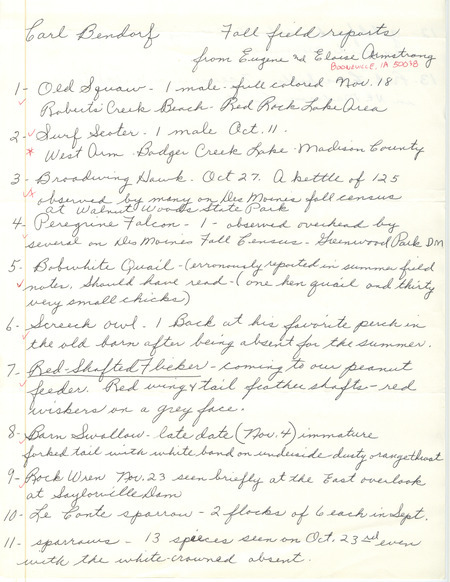 Carl Bendorf Fall field reports
from Eugene nd Eloise Armstrong
BOONEVILLE, IA 50038
1- Old Squaw - 1 male - full colored Nov. 18
Roberts Creek Beach - Red Rock Lake Area
2- Surf Scoter - 1 male Oct. 11.
* West Arm - Badger Creek Lake - Madison County
3- Broadwing Hawk - Oct 27. A kettle of 125
observed by many on Des Moines fall census
at Walnut Woods State Park
4- Peregrine Falcon - 1 - observed overhead by
several on Des Moines Fall Census - Greenwood Park DM
5- Bobwhite Quail - (erronously reported in summer field
notes, should have read - (one hen quail and thirty
very small chicks)
6- Screech owl - 1 Back at his favorite perch in
the old barn after being absent for the summer.
7- Red-Shafted Flicker - coming to our peanut
feeder. Red wing & tail feather shafts - red
wiskers on a grey face.
8- Barn Swallow - late date (Nov. 4) immature
forked tail with white band on underside - dusty orange throat
9- Rock Wren Nov. 23 seen briefly at the East overlook
at Saylorville Dam
10- Le Conte sparrow - 2 flocks of 6 each in Sept.
11- sparrows - 13 species seen on Oct. 23rd even
with the white-crowned absent.